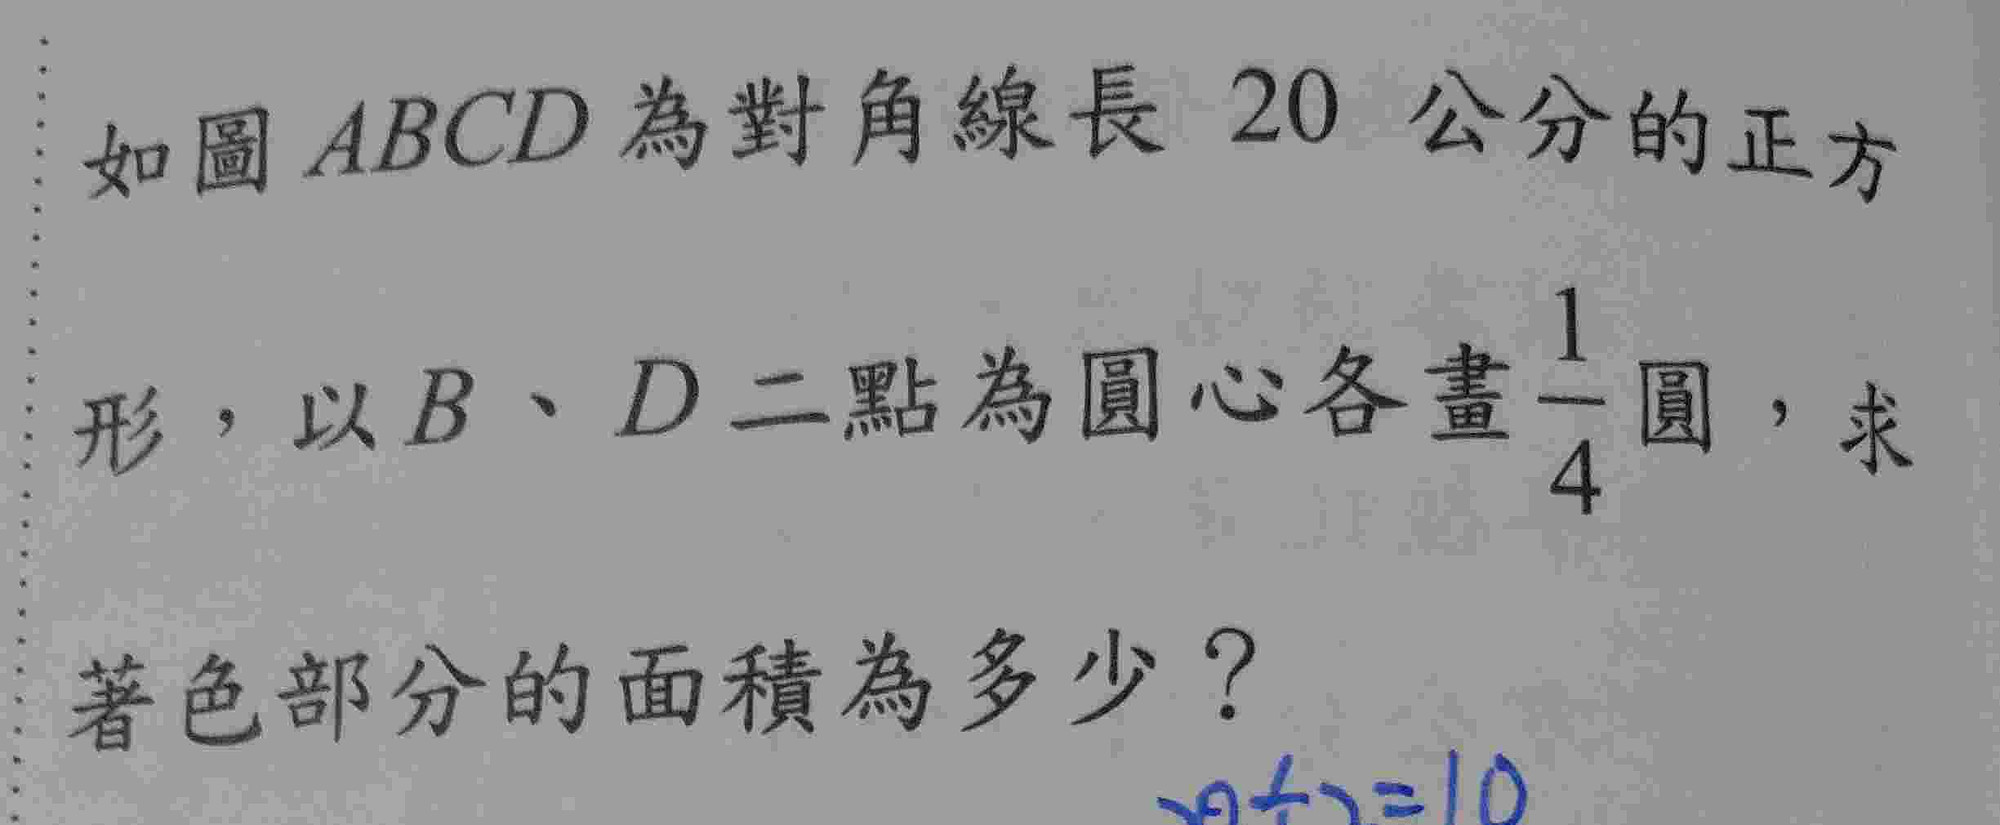 如圖 ABCD 為對角線長 20 公分的正方
形，以 B、D 二點為圓心各畫 1/4 圓，求
著色部分的面積為多少？
20÷2=10